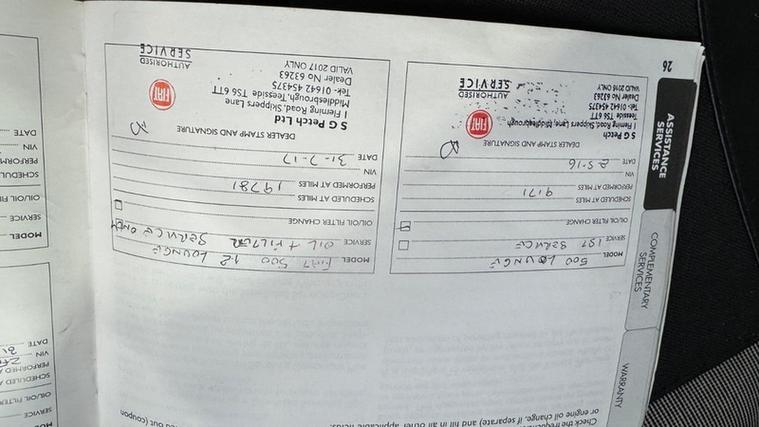 Check the
or engine oil change, if separate) and fill in all other applicable fields.
out (coupon
WARRANTY
COMPLEMENTARY
SERVICES
ASSISTANCE
SERVICES
26
MODEL 500 LOUNGE
SERVICE 1ST SERVICE
OIL/OIL FILTER CHANGE
SCHEDULED AT MILES
PERFORMED AT MILES 9171
VIN
DATE 2-5-16
DEALER STAMP AND SIGNATURE
S G Petch
1 Fleming Road, Skippers Lane, Middlesbrough
Teesside TS6 6TT
Tel: 01642 454375
Dealer No 63263
VALID 2016 ONLY
FIAT
AUTHORISED
SERVICE
MODEL FIAT 500 1.2 LOUNGE
SERVICE OIL + FILTER SERVICE ONLY
OIL/OIL FILTER CHANGE
SCHEDULED AT MILES
PERFORMED AT MILES 19781
VIN
DATE 31-7-17
DEALER STAMP AND SIGNATURE
S G Petch Ltd
1 Fleming Road, Skippers Lane
Middlesbrough, Teesside TS6 6TT
Tel: 01642 454375
Dealer No 63263
VALID 2017 ONLY
FIAT
AUTHORISED
SERVICE
SERVICE
OIL/OIL
SCHEDULED
PERFORMED
VIN
DATE
MODEL
SERVICE
OIL/OIL
SCHEDUL
PERFORM
VIN
DATE